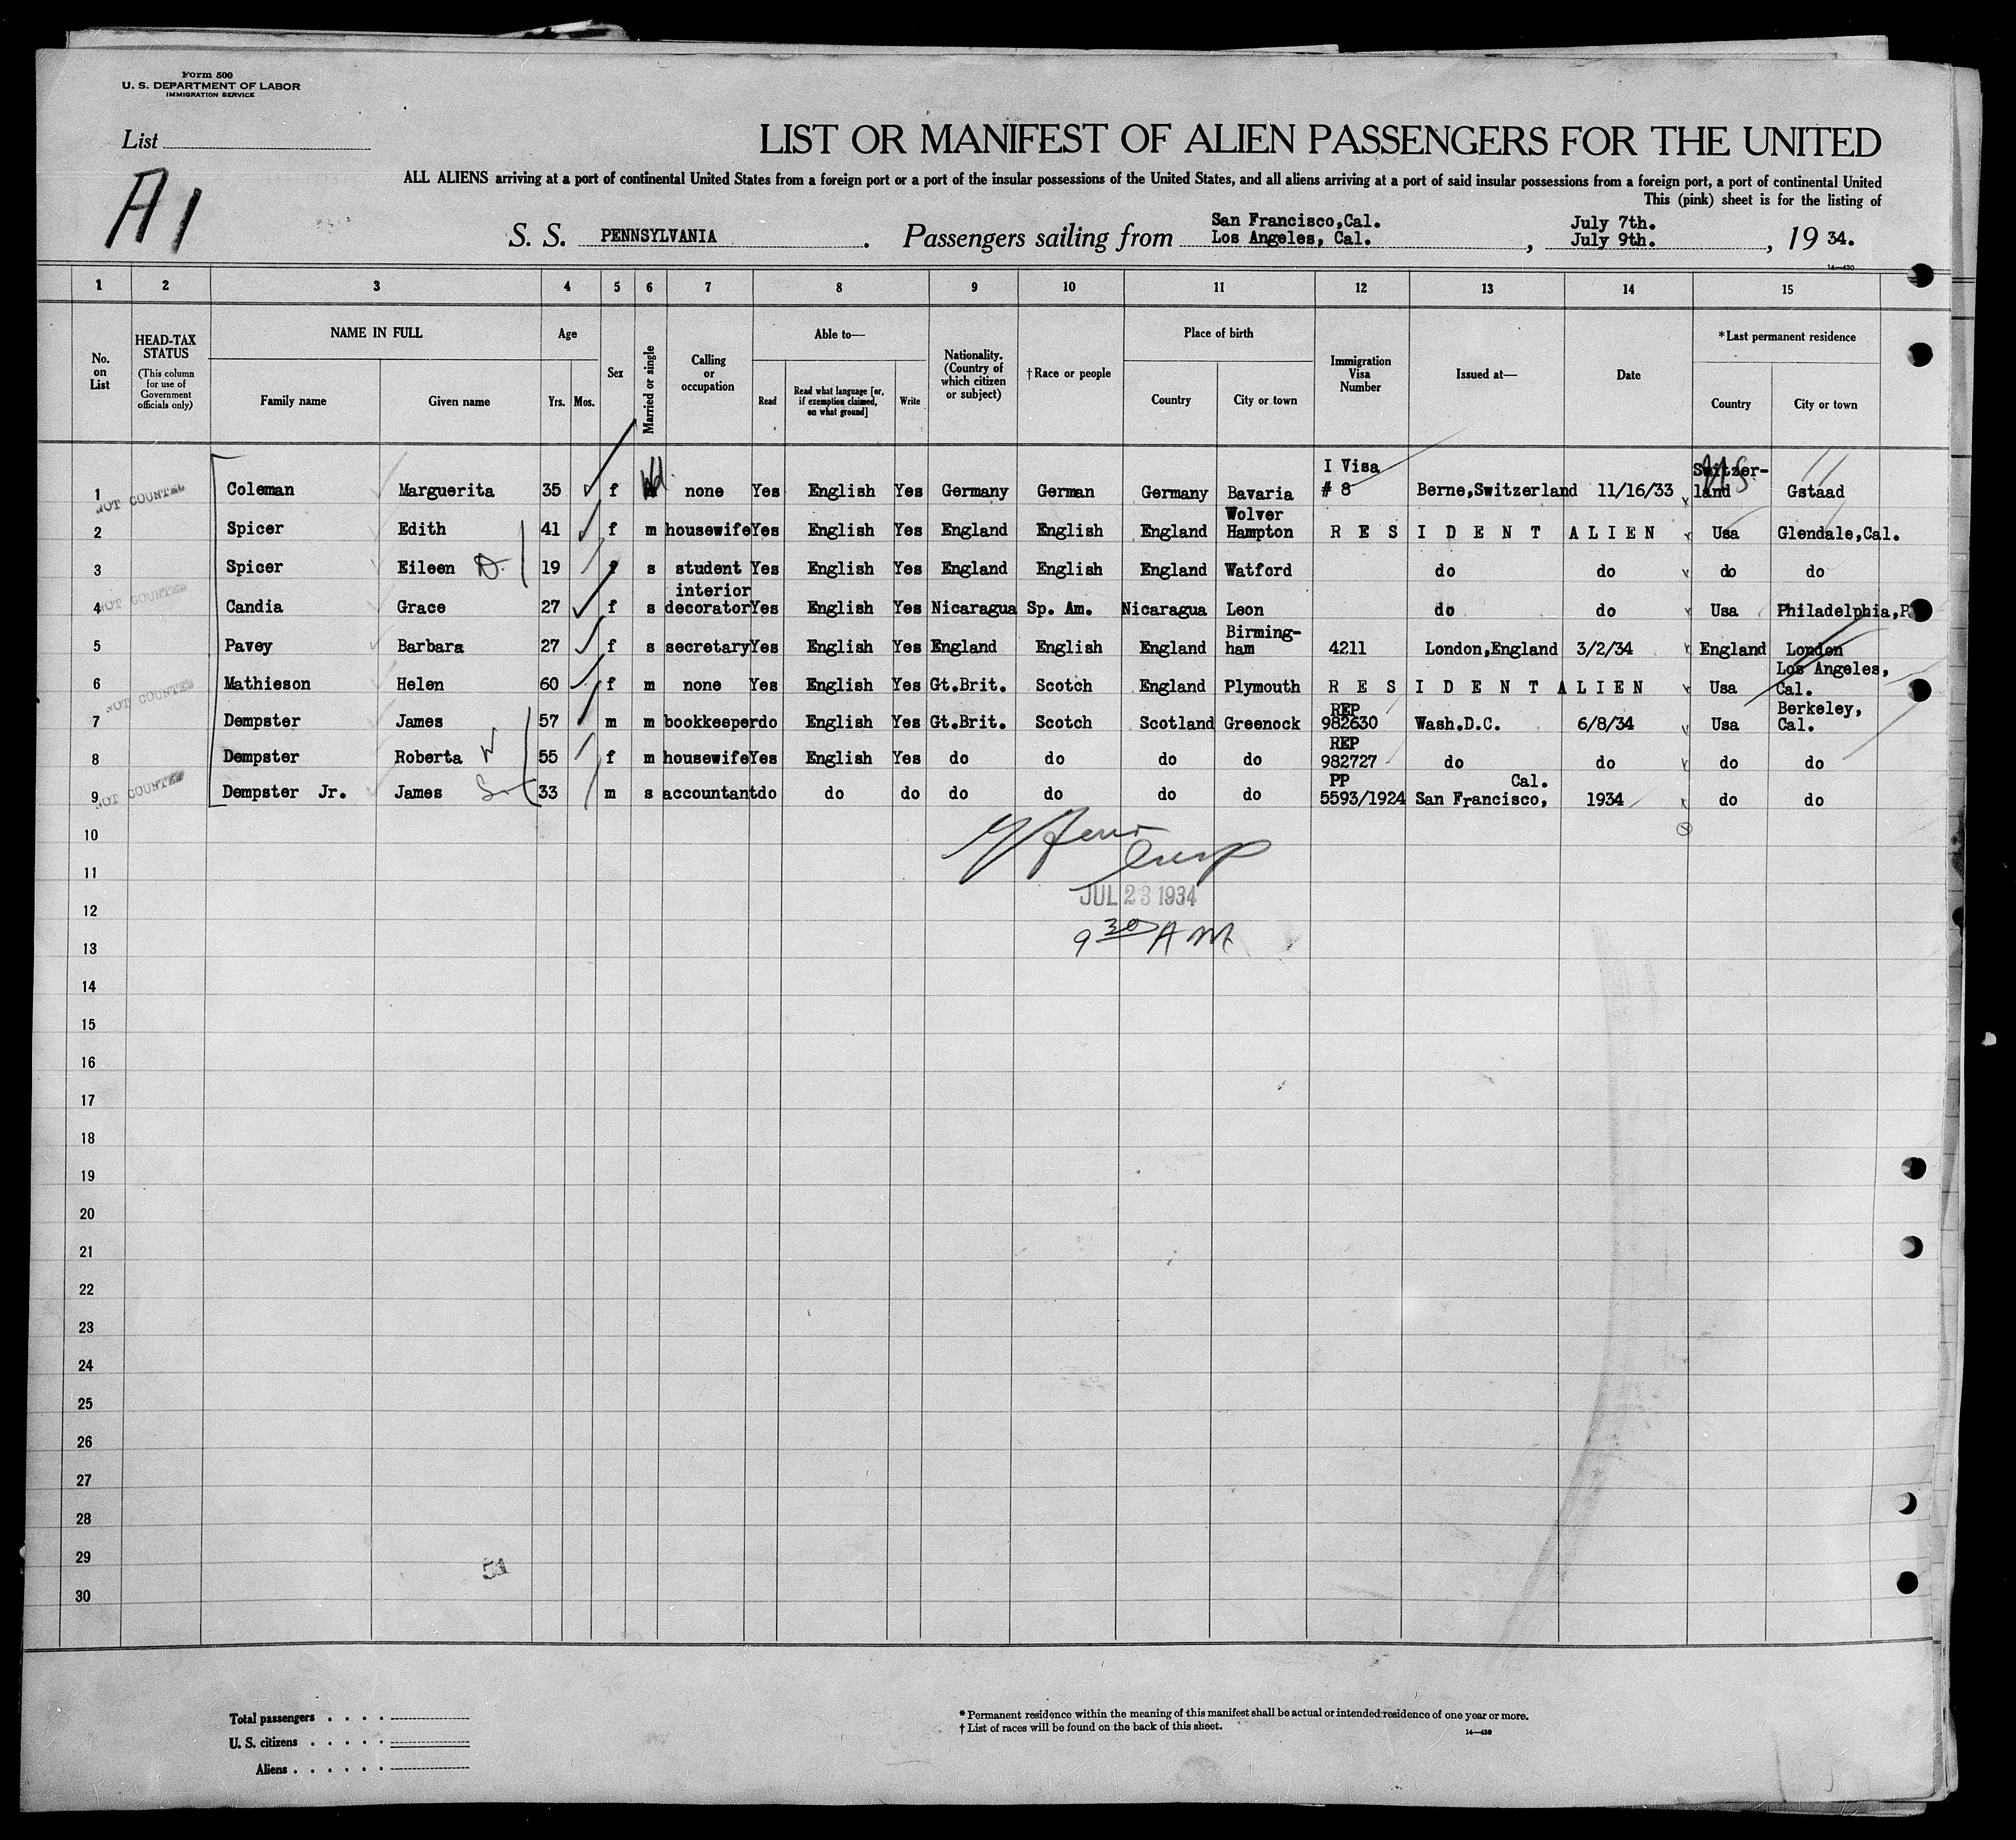 Form 500
U. S. DEPARTMENT OF LABOR
IMMIGRATION SERVICE
List
A1
LIST OR MANIFEST OF ALIEN PASSENGERS FOR THE UNITED
ALL ALIENS arriving at a port of continental United States from a foreign port or a port of the insular possessions of the United States, and all aliens arriving at a port of said insular possessions from a foreign port, a port of continental United
This (pink) sheet is for the listing of
S. S. PENNSYLVANIA . Passengers sailing from San Francisco,Cal. Los Angeles, Cal. , July 7th. July 9th. , 19 34.
14—430
1 2 3 4 5 6 7 8 9 10 11 12 13 14 15
No. on List
HEAD-TAX STATUS (This column for use of Government officials only)
NAME IN FULL
Family name Given name
Age
Yrs. Mos.
Sex
Married or single
Calling or occupation
Able to—
Read Read what language [or, if exemption claimed, on what ground] Write
Nationality. (Country of which citizen or subject)
†Race or people
Place of birth
Country City or town
Immigration Visa Number
Issued at—
Date
*Last permanent residence
Country City or town
1 NOT COUNTED Coleman Marguerita 35 f Wd. none Yes English Yes Germany German Germany Bavaria I Visa # 8 Berne,Switzerland 11/16/33 Switzer-land U.S. Gstaad
2 Spicer Edith 41 f m housewife Yes English Yes England English England Wolver Hampton R E S I D E N T A L I E N Usa Glendale,Cal.
3 Spicer Eileen D. 19 f s student Yes English Yes England English England Watford do do do do
4 NOT COUNTED Candia Grace 27 f s interior decorator Yes English Yes Nicaragua Sp. Am. Nicaragua Leon do do Usa Philadelphia,P
5 Pavey Barbara 27 f s secretary Yes English Yes England English England Birming-ham 4211 London,England 3/2/34 England London
6 NOT COUNTED Mathieson Helen 60 f m none Yes English Yes Gt.Brit. Scotch England Plymouth R E S I D E N T A L I E N Usa Los Angeles, Cal.
7 Dempster James 57 m m bookkeeper do English Yes Gt.Brit. Scotch Scotland Greenock REP 982630 Wash.D.C. 6/8/34 Usa Berkeley, Cal.
8 Dempster Roberta W 55 f m housewife Yes English Yes do do do do REP 982727 do do do do
9 NOT COUNTED Dempster Jr. James 33 m s accountant do do do do do do do PP 5593/1924 San Francisco, Cal. 1934 do do
10
11
12 JUL 23 1934
13 9 30 A M
14
15
16
17
18
19
20
21
22
23
24
25
26
27
28
29
51
30
Total passengers
U. S. citizens
Aliens
* Permanent residence within the meaning of this manifest shall be actual or intended residence of one year or more.
† List of races will be found on the back of this sheet.
14—430